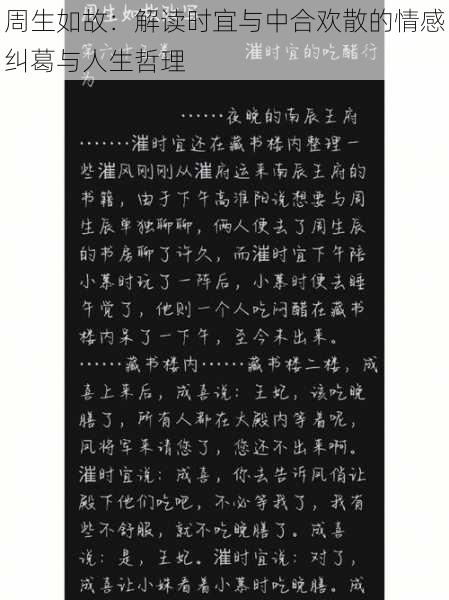 周生如故：解读时宜与中合欢散的情感
纠葛与人生哲理
漼时宜的吃醋行
为
······夜晚的南辰王府
·······漼时宜还在藏书楼内整理一
些漼风刚刚从漼府运来南辰王府的
书籍，由于下午高淮阳说想要与周
生辰单独聊聊，俩人便去了周生辰
的书房聊了许久，而漼时宜下午陪
小慕时玩了一阵后，小慕时便去睡
午觉了，他则一个人吃闷醋在藏书
楼内呆了一下午，至今未出来。
······藏书楼内······藏书楼二楼，成
喜上来后，成喜说：王妃，该吃晚
膳了，所有人都在大殿内等着呢，
凤将军来请您了，您还不出来啊。
漼时宜说：成喜，你去告诉凤俏让
殿下他们吃吧，不必等我了，我有
些不舒服，就不吃晚膳了。成喜
说：是，王妃。漼时宜说：对了，
成喜让小姝看着小慕时吃晚膳。成